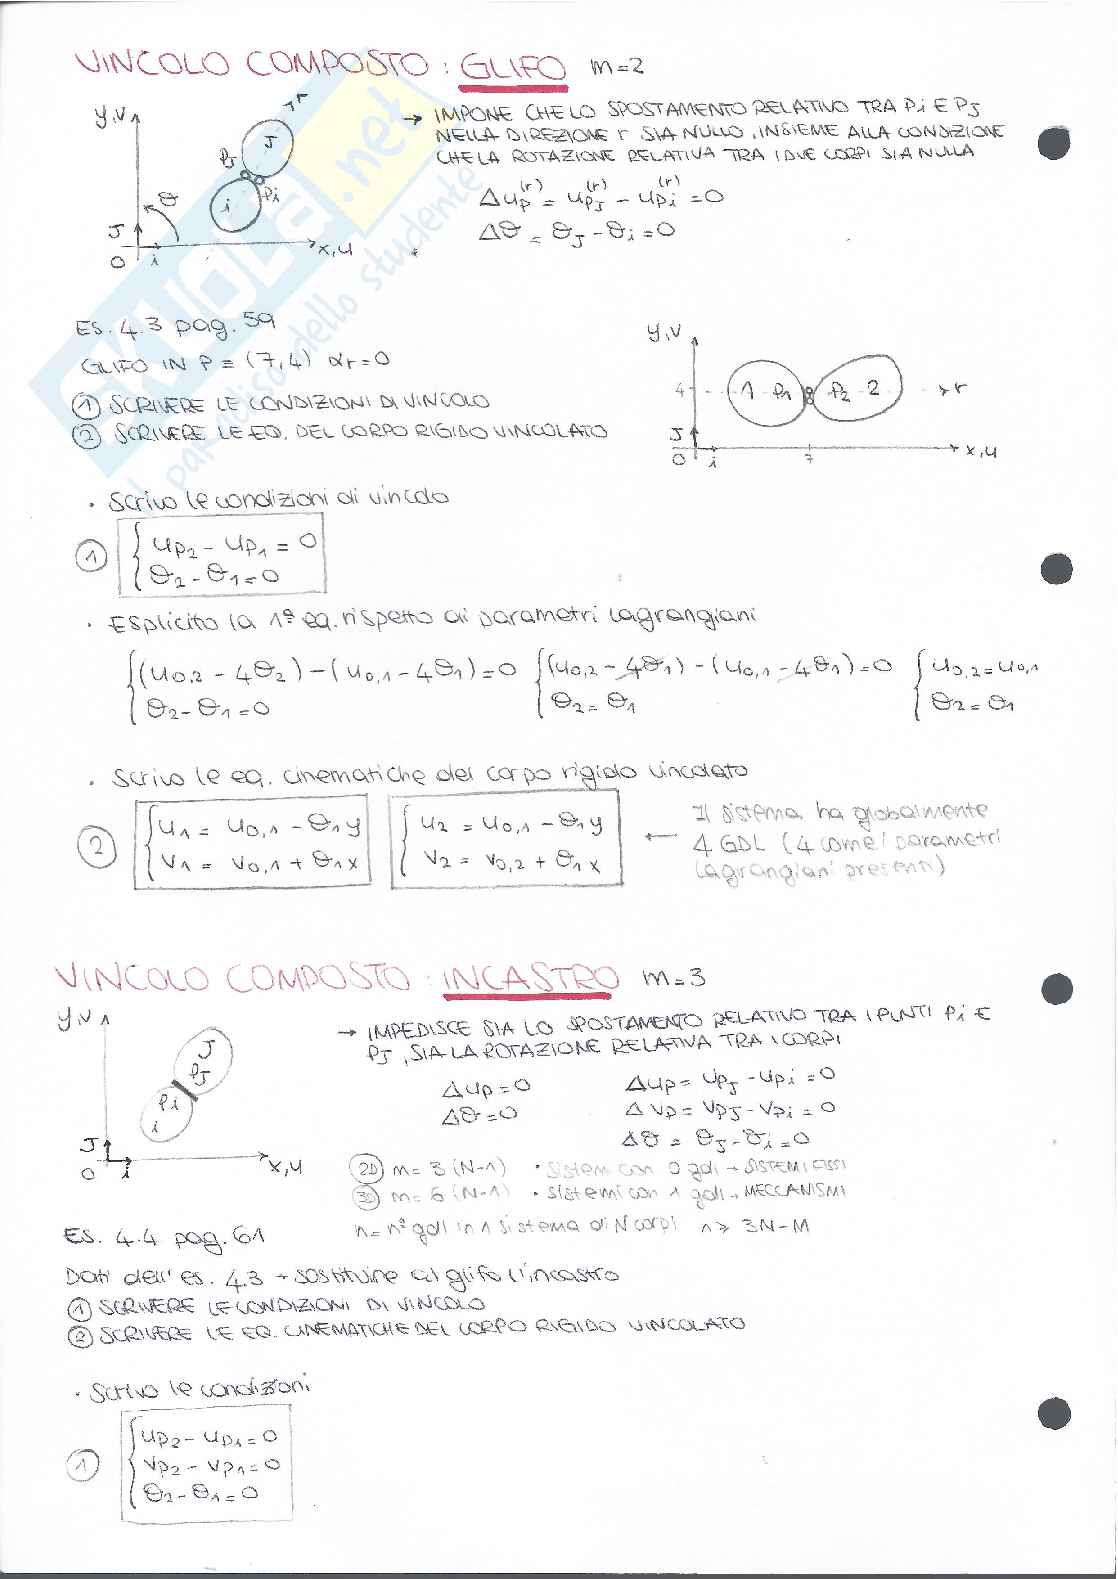 VINCOLO COMPOSTO : GLIFO m=2
y,v
r
J
PJ
Pi
i
θ
J
O i
x,u
→ IMPONE CHE LO SPOSTAMENTO RELATIVO TRA Pi E PJ
NELLA DIREZIONE r SIA NULLO, INSIEME ALLA CONDIZIONE
CHE LA ROTAZIONE RELATIVA TRA I DUE CORPI SIA NULLA
Δup(r) = upJ(r) - upi(r) = 0
Δθ = θJ - θi = 0
SKUOLA.net
il paradiso dello studente
Es. 4.3 pag. 59
GLIFO IN P ≡ (7,4) αr=0
① SCRIVERE LE CONDIZIONI DI VINCOLO
② SCRIVERE LE EQ. DEL CORPO RIGIDO VINCOLATO
y,v
4 1 P1 P2 2 r
J
O i 7 x,u
· Scrivo le condizioni di vincolo
① { up2 - up1 = 0
θ2 - θ1 = 0
· Esplicito la 1ª eq. rispetto ai parametri lagrangiani
{ (u0,2 - 4θ2) - (u0,1 - 4θ1) = 0 { (u0,2 - 4θ1) - (u0,1 - 4θ1) = 0 { u0,2 = u0,1
θ2 - θ1 = 0 θ2 = θ1 θ2 = θ1
· Scrivo le eq. cinematiche del corpo rigido vincolato
② { u1 = u0,1 - θ1y { u2 = u0,1 - θ1y
v1 = v0,1 + θ1x v2 = v0,2 + θ1x
← Il sistema ha globalmente
4 GDL (4 come i parametri
lagrangiani presenti)
VINCOLO COMPOSTO : INCASTRO m=3
y,v
J
PJ
Pi
i
J
O i
x,u
→ IMPEDISCE SIA LO SPOSTAMENTO RELATIVO TRA I PUNTI Pi E
PJ, SIA LA ROTAZIONE RELATIVA TRA I CORPI
Δup = 0 Δup = upJ - upi = 0
Δθ = 0 Δvp = vpJ - vpi = 0
Δθ = θJ - θi = 0
2D m = 3 (N-1) · sistemi con 0 gdl → SISTEMI FISSI
3D m = 6 (N-1) · sistemi con 1 gdl → MECCANISMI
n = n° gdl in 1 sistema di N corpi n ≥ 3N-M
Es. 4.4 pag. 61
Dati dell' es. 4.3 → sostituire al glifo l'incastro
① SCRIVERE LE CONDIZIONI DI VINCOLO
② SCRIVERE LE EQ. CINEMATICHE DEL CORPO RIGIDO VINCOLATO
· Scrivo le condizioni
① { up2 - up1 = 0
vp2 - vp1 = 0
θ2 - θ1 = 0